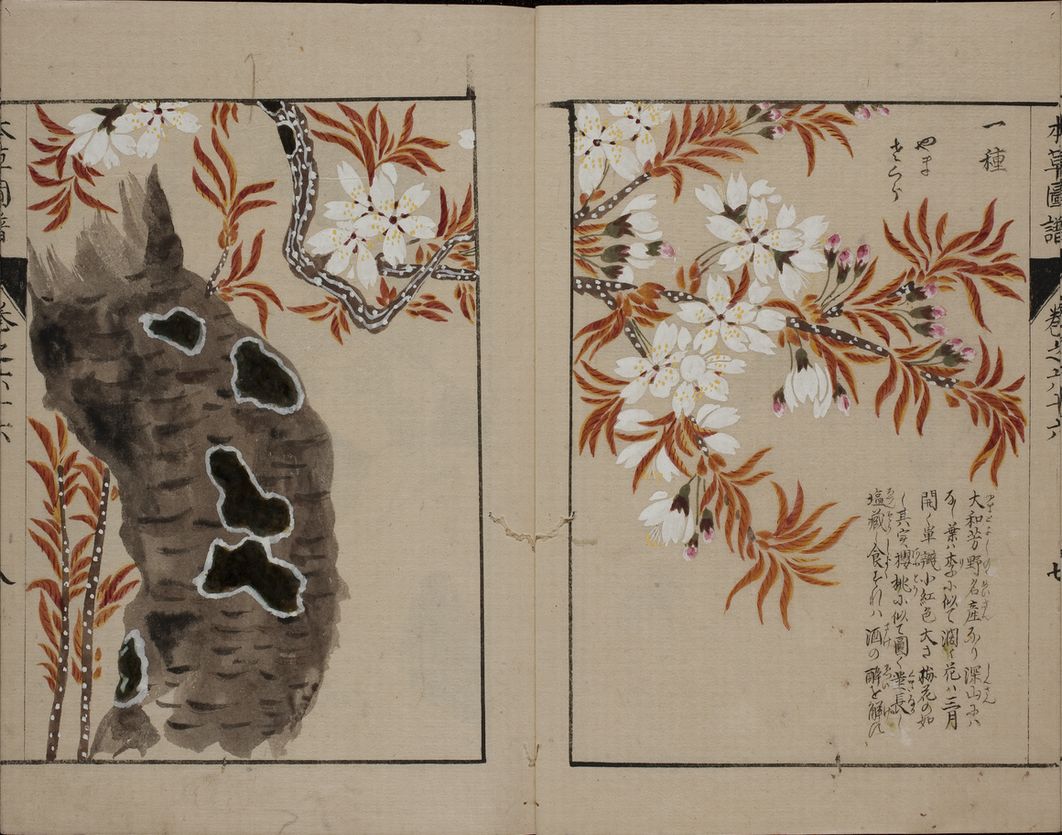 本草圖譜 巻之六十六 七
一種
やま
さくら
大和芳野名産なり深山には
なし葉は李に似て濶く花は三月
開く単瓣小紅色大さ梅花の如
し其実櫻桃に似て圓く莖長し
塩蔵し食すれハ酒の醉を解す
本草圖譜 巻之六十六 八